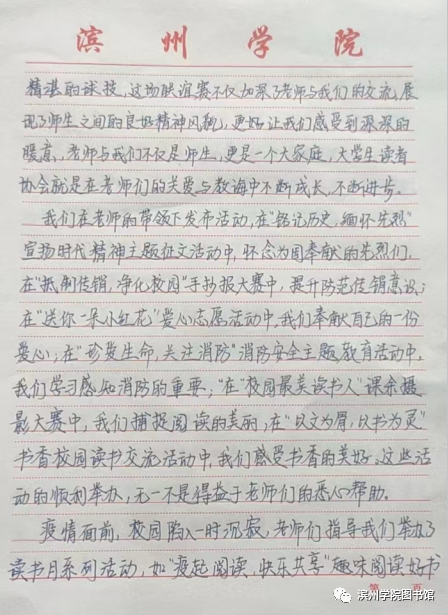 滨州学院
精湛的球技,这场联谊赛不仅加深了老师与我们的交流,展
现了师生之间的良好精神风貌,更好让我们感受到深深的
暖意,老师与我们不仅是师生,更是一个大家庭,大学生读者
协会就是在老师们的关爱与教诲中不断成长,不断进步。
我们在老师的带领下发布活动,在“铭记历史,缅怀先烈”
宣扬时代精神主题征文活动中,怀念为国奉献的先烈们,
在“抵制传销,净化校园”手抄报大赛中,提升防范传销意识;
在“送你一朵小红花”爱心志愿活动中,我们奉献自己的一份
爱心;在“珍爱生命,关注消防”消防安全主题教育活动中,
我们学习感知消防的重要;“在“校园最美读书人”课余摄
影大赛中,我们捕捉阅读的美丽;在“以文为骨,以书为灵”
书香校园读书交流活动中,我们感受书香的美好。这些活
动的顺利举办,无一不是得益于老师们的悉心帮助。
疫情面前,校园陷入一时沉寂,老师们指导我们举办了
读书月系列活动,如“疫起阅读,快乐共享”趣味阅读好书
第 页
滨州学院图书馆